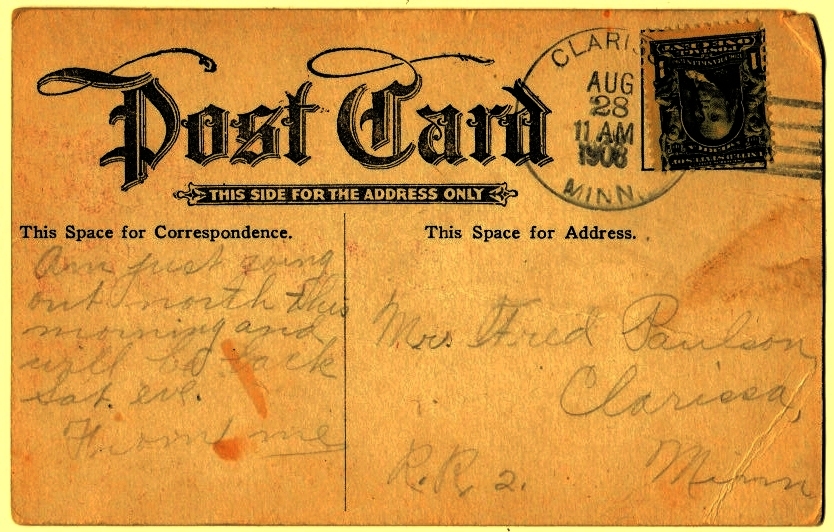 Post Card
THIS SIDE FOR THE ADDRESS ONLY
CLARIS
AUG
28
11 AM
1908
MINN.
This Space for Correspondence.
Am just going
out north this
morning and
will be back
Sat. eve.
From me
This Space for Address.
Mrs Fred Paulson,
Clarissa,
R.R. 2. Minn